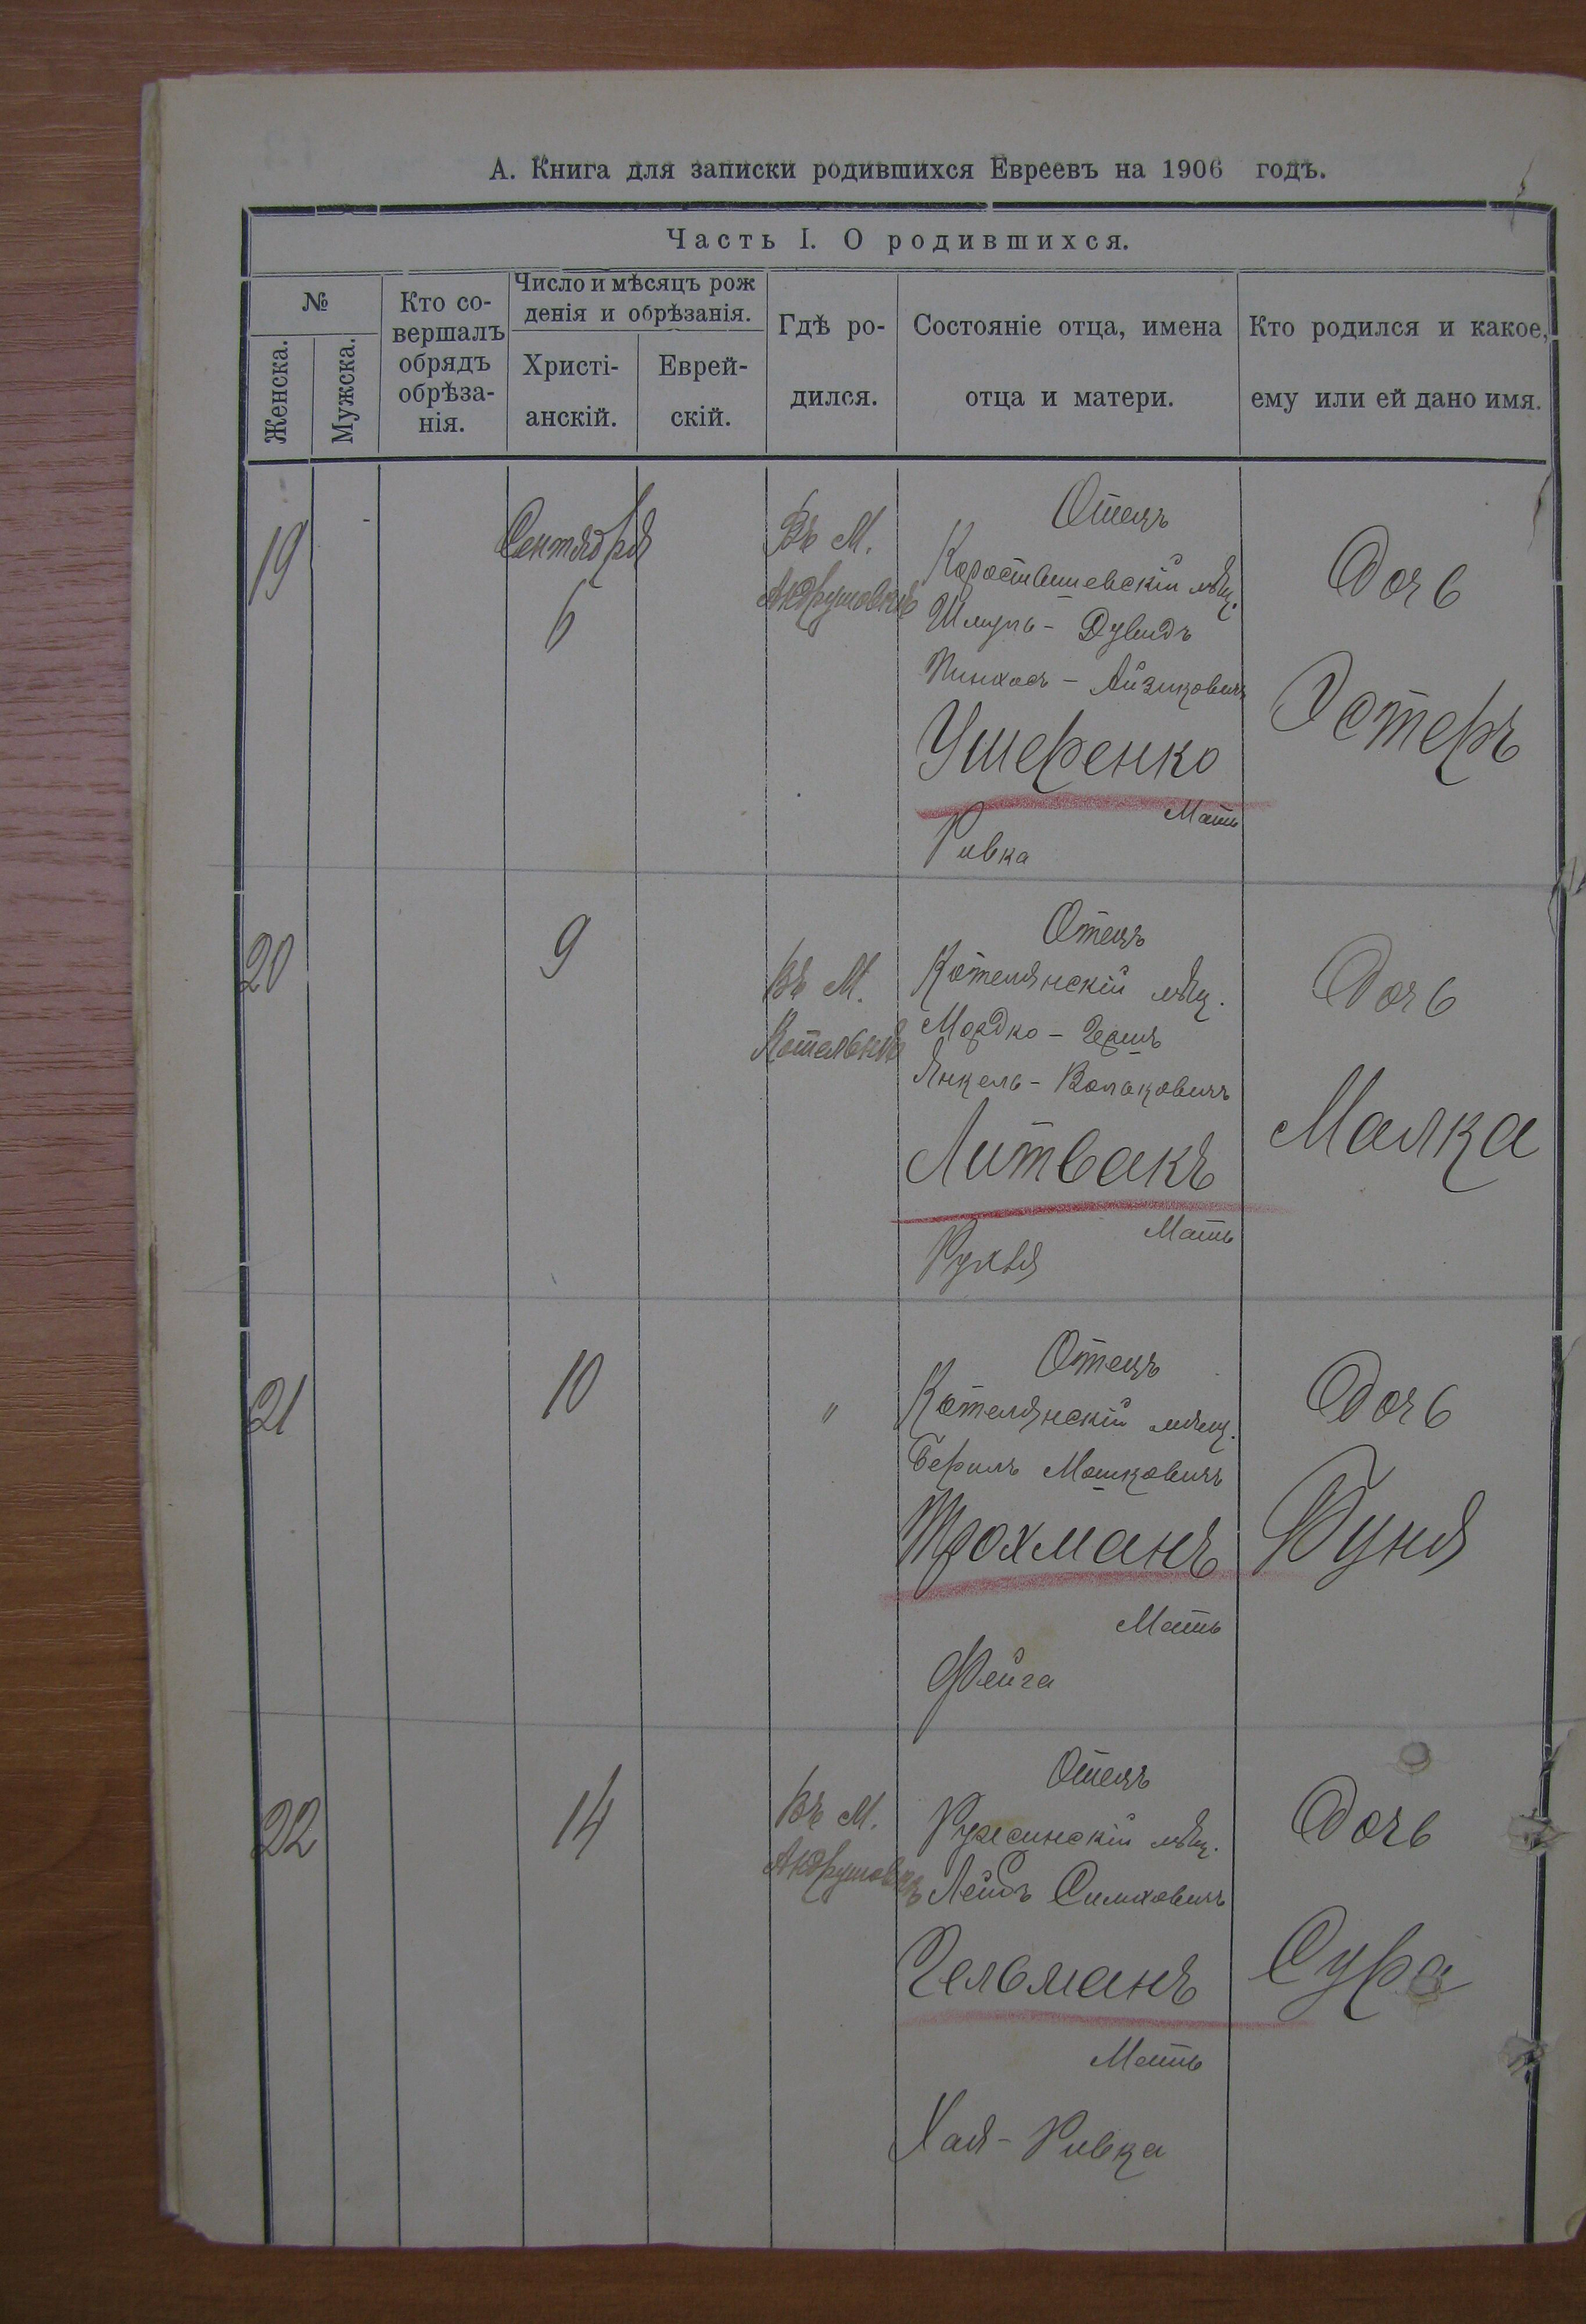 А. Книга для записки родившихся Евреевъ на 1906 годъ.
Часть I. О родившихся.
№
Женска.
Мужска.
Кто со-
вершалъ
обрядъ
обрѣза-
нія.
Число и мѣсяцъ рож
денія и обрѣзанія.
Христі-
анскій.
Еврей-
скій.
Гдѣ ро-
дился.
Состояніе отца, имена
отца и матери.
Кто родился и какое,
ему или ей дано имя.
19
Сентября
6
Въ М.
Андрушовкѣ
Отецъ
Коростышевскій мѣщ.
Шмуль - Дувидъ
Пинхасъ - Айзиковичъ
Ушеренко
Мать
Ривка
Дочь
Эстеръ
20
9
Въ М.
Котельнѣ
Отецъ
Котелянскій мѣщ.
Мордко - Гершъ
Янкель - Волоковичъ
Литвакъ
Мать
Рухля
Дочь
Малка
21
10
"
Отецъ
Котелянскій мѣщ.
Берилъ Мошковичъ
Трохманъ
Мать
Фейга
Дочь
Фуня
22
14
Въ М.
Андрушовкѣ
Отецъ
Ружинскій мѣщ.
Лейбъ Симховичъ
Гельманъ
Мать
Хая - Ривка
Дочь
Сура